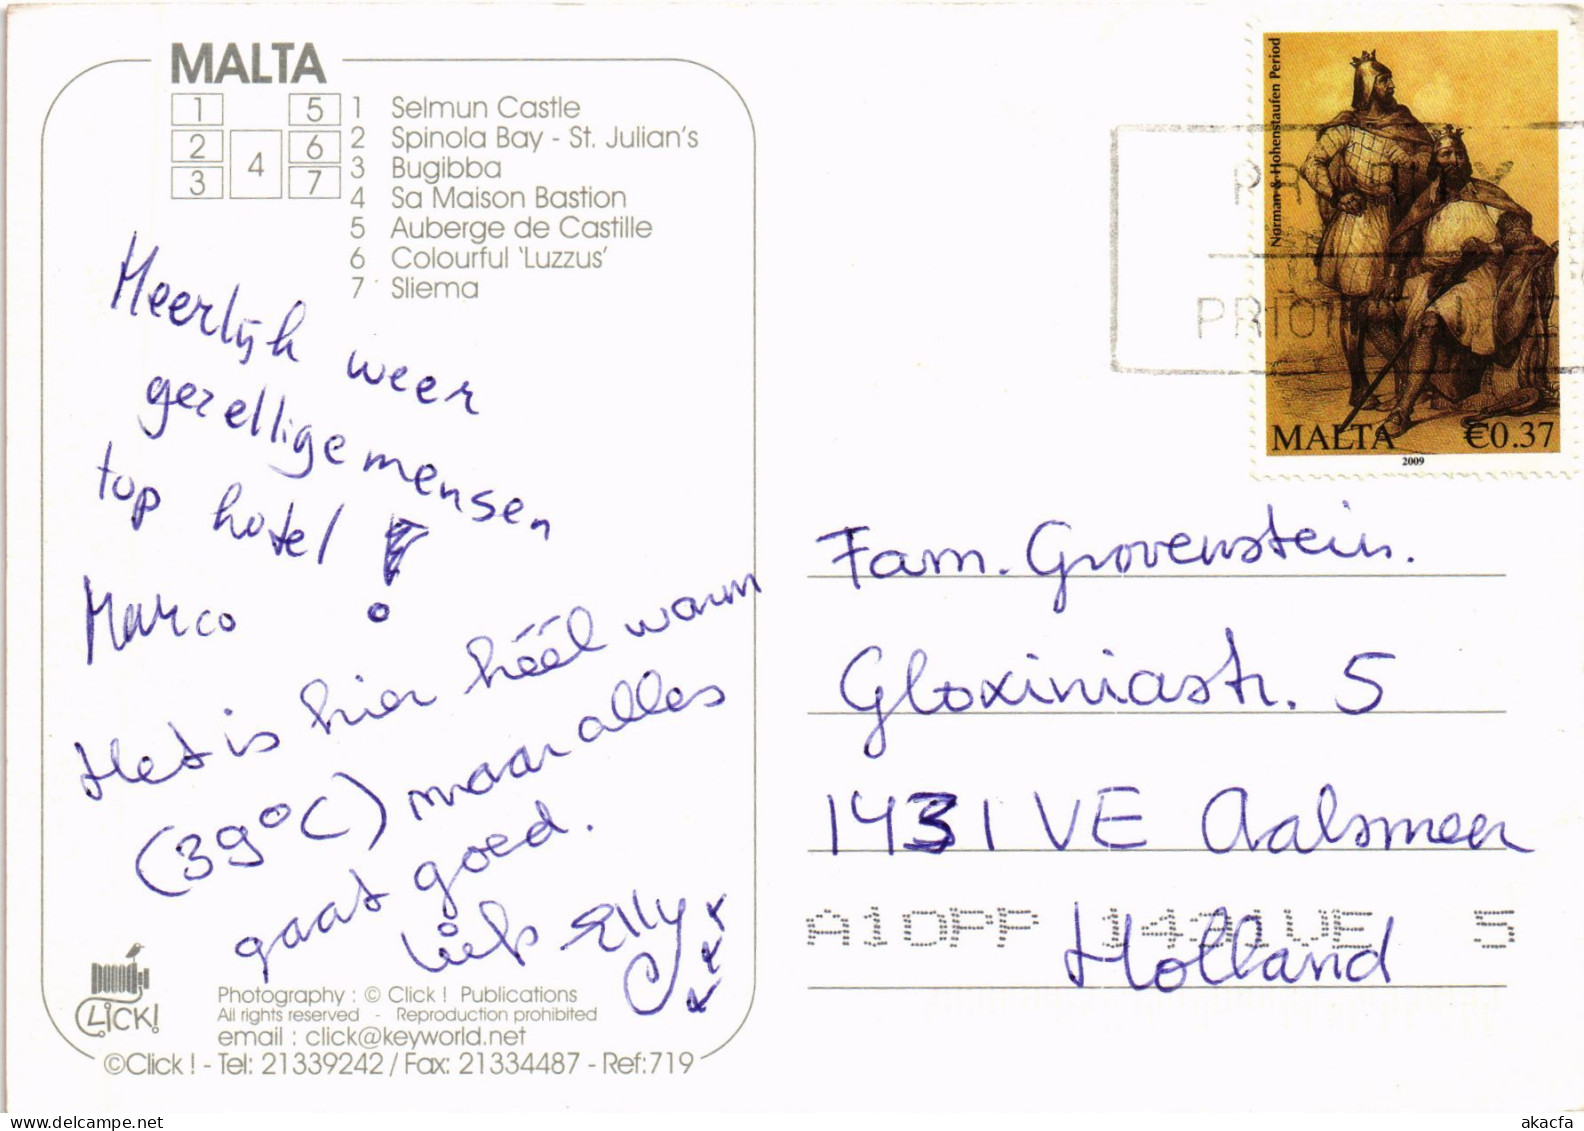 MALTA
1 5
2 4 6
3 7
1 Selmun Castle
2 Spinola Bay - St. Julian's
3 Bugibba
4 Sa Maison Bastion
5 Auberge de Castille
6 Colourful 'Luzzus'
7 Sliema
Heerlijk weer
gezellige mensen
top hotel !
Marco
Het is hier héél warm
(39°C) maar alles
gaat goed.
Liefs Elly
Photography : © Click ! Publications
All rights reserved - Reproduction prohibited
email : click@keyworld.net
©Click ! - Tel: 21339242 / Fax: 21334487 - Ref:719
CLICK!
Norman & Hohenstaufen Period
MALTA €0.37
2009
PRIORITY
PRIORITAIRE
Fam. Grovenstein.
Gloxiniastr. 5
1431 VE Aalsmeer
A10PP 1431VE 5
Holland
www.delcampe.net
akacfa